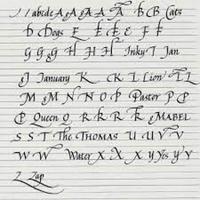 J J abcde A A A A A b B Cats
D Dogs E E E E F F
G G G H H H Inky I Jan
J January K K K L Lion L L
M M N N O P Pastor P P
P Queen Q R R R R MABEL
S S T The THOMAS U U V V
W W Water X X X y Yes Y Y
Z Zap